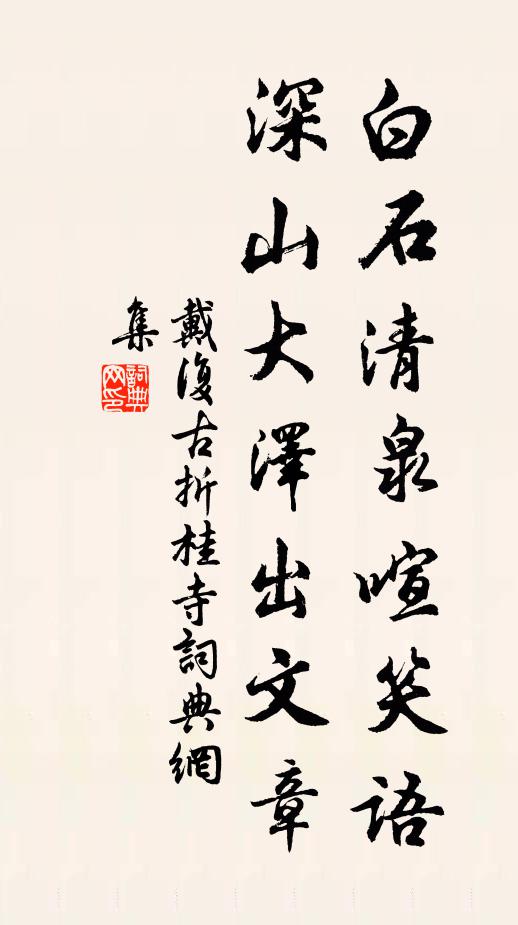 白石清泉喧笑語
深山大澤出文章
戴復古折桂寺詞典網
集
詞典
网印